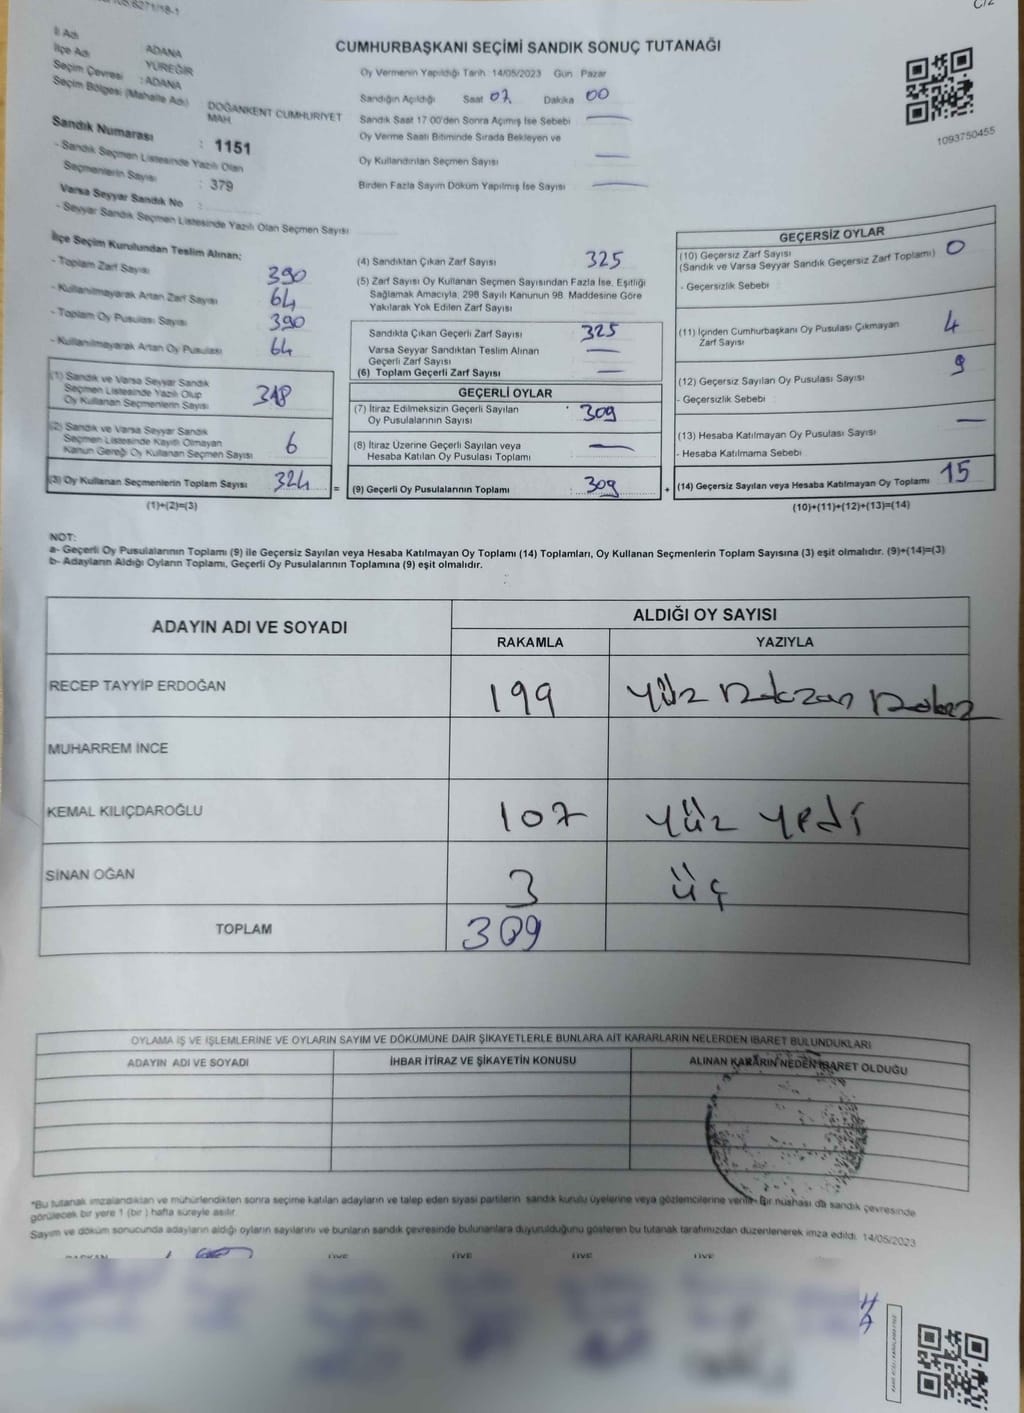 CUMHURBAŞKANI SEÇİMİ SANDIK SONUÇ TUTANAĞI
İl Adı
İlçe Adı
Seçim Çevresi
Seçim Bölgesi (Mahalle Adı)
ADANA
YÜREĞİR
: ADANA
DOĞANKENT CUMHURİYET MAH.
Sandık Numarası : 1151
- Sandık Seçmen Listesinde Yazılı Olan
Seçmenlerin Sayısı : 379
Varsa Seyyar Sandık No :
- Seyyar Sandık Seçmen Listesinde Yazılı Olan Seçmen Sayısı
Oy Vermenin Yapıldığı Tarih 14/05/2023 Gün Pazar
Sandığın Açıldığı Saat 07 Dakika 00
Sandık Saat 17:00'den Sonra Açımış İse Sebebi —
Oy Verme Saati Bitiminde Sırada Bekleyen ve
Oy Kullandırılan Seçmen Sayısı —
Birden Fazla Sayım Döküm Yapılmış İse Sayısı —
1093750455
İlçe Seçim Kurulundan Teslim Alınan;
- Toplam Zarf Sayısı 390
- Kullanılmayarak Artan Zarf Sayısı 64
- Toplam Oy Pusulası Sayısı 390
- Kullanılmayarak Artan Oy Pusulası 64
(1) Sandık ve Varsa Seyyar Sandık
Seçmen Listesinde Yazılı Olup
Oy Kullanan Seçmenlerin Sayısı 318
(2) Sandık ve Varsa Seyyar Sandık
Seçmen Listesinde Kayıtlı Olmayan
Kanun Gereği Oy Kullanan Seçmen Sayısı 6
(3) Oy Kullanan Seçmenlerin Toplam Sayısı 324
(1)+(2)=(3)
(4) Sandıktan Çıkan Zarf Sayısı 325
(5) Zarf Sayısı Oy Kullanan Seçmen Sayısından Fazla İse, Eşitliği
Sağlamak Amacıyla, 298 Sayılı Kanunun 98. Maddesine Göre
Yakılarak Yok Edilen Zarf Sayısı
Sandıkta Çıkan Geçerli Zarf Sayısı 325
Varsa Seyyar Sandıktan Teslim Alınan
Geçerli Zarf Sayısı —
(6) Toplam Geçerli Zarf Sayısı —
GEÇERLİ OYLAR
(7) İtiraz Edilmeksizin Geçerli Sayılan
Oy Pusulalarının Sayısı 309
(8) İtiraz Üzerine Geçerli Sayılan veya
Hesaba Katılan Oy Pusulası Toplamı —
= (9) Geçerli Oy Pusulalarının Toplamı 309 +
GEÇERSİZ OYLAR
(10) Geçersiz Zarf Sayısı 0
(Sandık ve Varsa Seyyar Sandık Geçersiz Zarf Toplamı)
- Geçersizlik Sebebi
(11) İçinden Cumhurbaşkanı Oy Pusulası Çıkmayan
Zarf Sayısı 4
(12) Geçersiz Sayılan Oy Pusulası Sayısı 9
- Geçersizlik Sebebi
(13) Hesaba Katılmayan Oy Pusulası Sayısı —
- Hesaba Katılmama Sebebi
(14) Geçersiz Sayılan veya Hesaba Katılmayan Oy Toplamı 15
(10)+(11)+(12)+(13)=(14)
NOT:
a- Geçerli Oy Pusulalarının Toplamı (9) ile Geçersiz Sayılan veya Hesaba Katılmayan Oy Toplamı (14) Toplamları, Oy Kullanan Seçmenlerin Toplam Sayısına (3) eşit olmalıdır. (9)+(14)=(3)
b- Adayların Aldığı Oyların Toplamı, Geçerli Oy Pusulalarının Toplamına (9) eşit olmalıdır.
ADAYIN ADI VE SOYADI
ALDIĞI OY SAYISI
RAKAMLA YAZIYLA
RECEP TAYYİP ERDOĞAN 199 Yüz Doksan Dokuz
MUHARREM İNCE
KEMAL KILIÇDAROĞLU 107 Yüz Yedi
SİNAN OĞAN 3 üç
TOPLAM 309
OYLAMA İŞ VE İŞLEMLERİNE VE OYLARIN SAYIM VE DÖKÜMÜNE DAİR ŞİKAYETLERLE BUNLARA AİT KARARLARIN NELERDEN İBARET BULUNDUKLARI
ADAYIN ADI VE SOYADI İHBAR İTİRAZ VE ŞİKAYETİN KONUSU ALINAN KARARIN NEDEN İBARET OLDUĞU
*Bu tutanak imzalandıktan ve mühürlendikten sonra seçime katılan adayların ve talep eden siyasi partilerin sandık kurulu üyelerine veya gözlemcilerine verilir. Bir nüshası da sandık çevresinde
görülecek bir yere 1 (bir) hafta süreyle asılır.
Sayım ve döküm sonucunda adayların aldığı oyların sayılarını ve bunların sandık çevresinde bulunanlara duyurulduğunu gösteren bu tutanak tarafımızdan düzenlenerek imza edildi. 14/05/2023
BAŞKAN ÜYE ÜYE ÜYE ÜYE